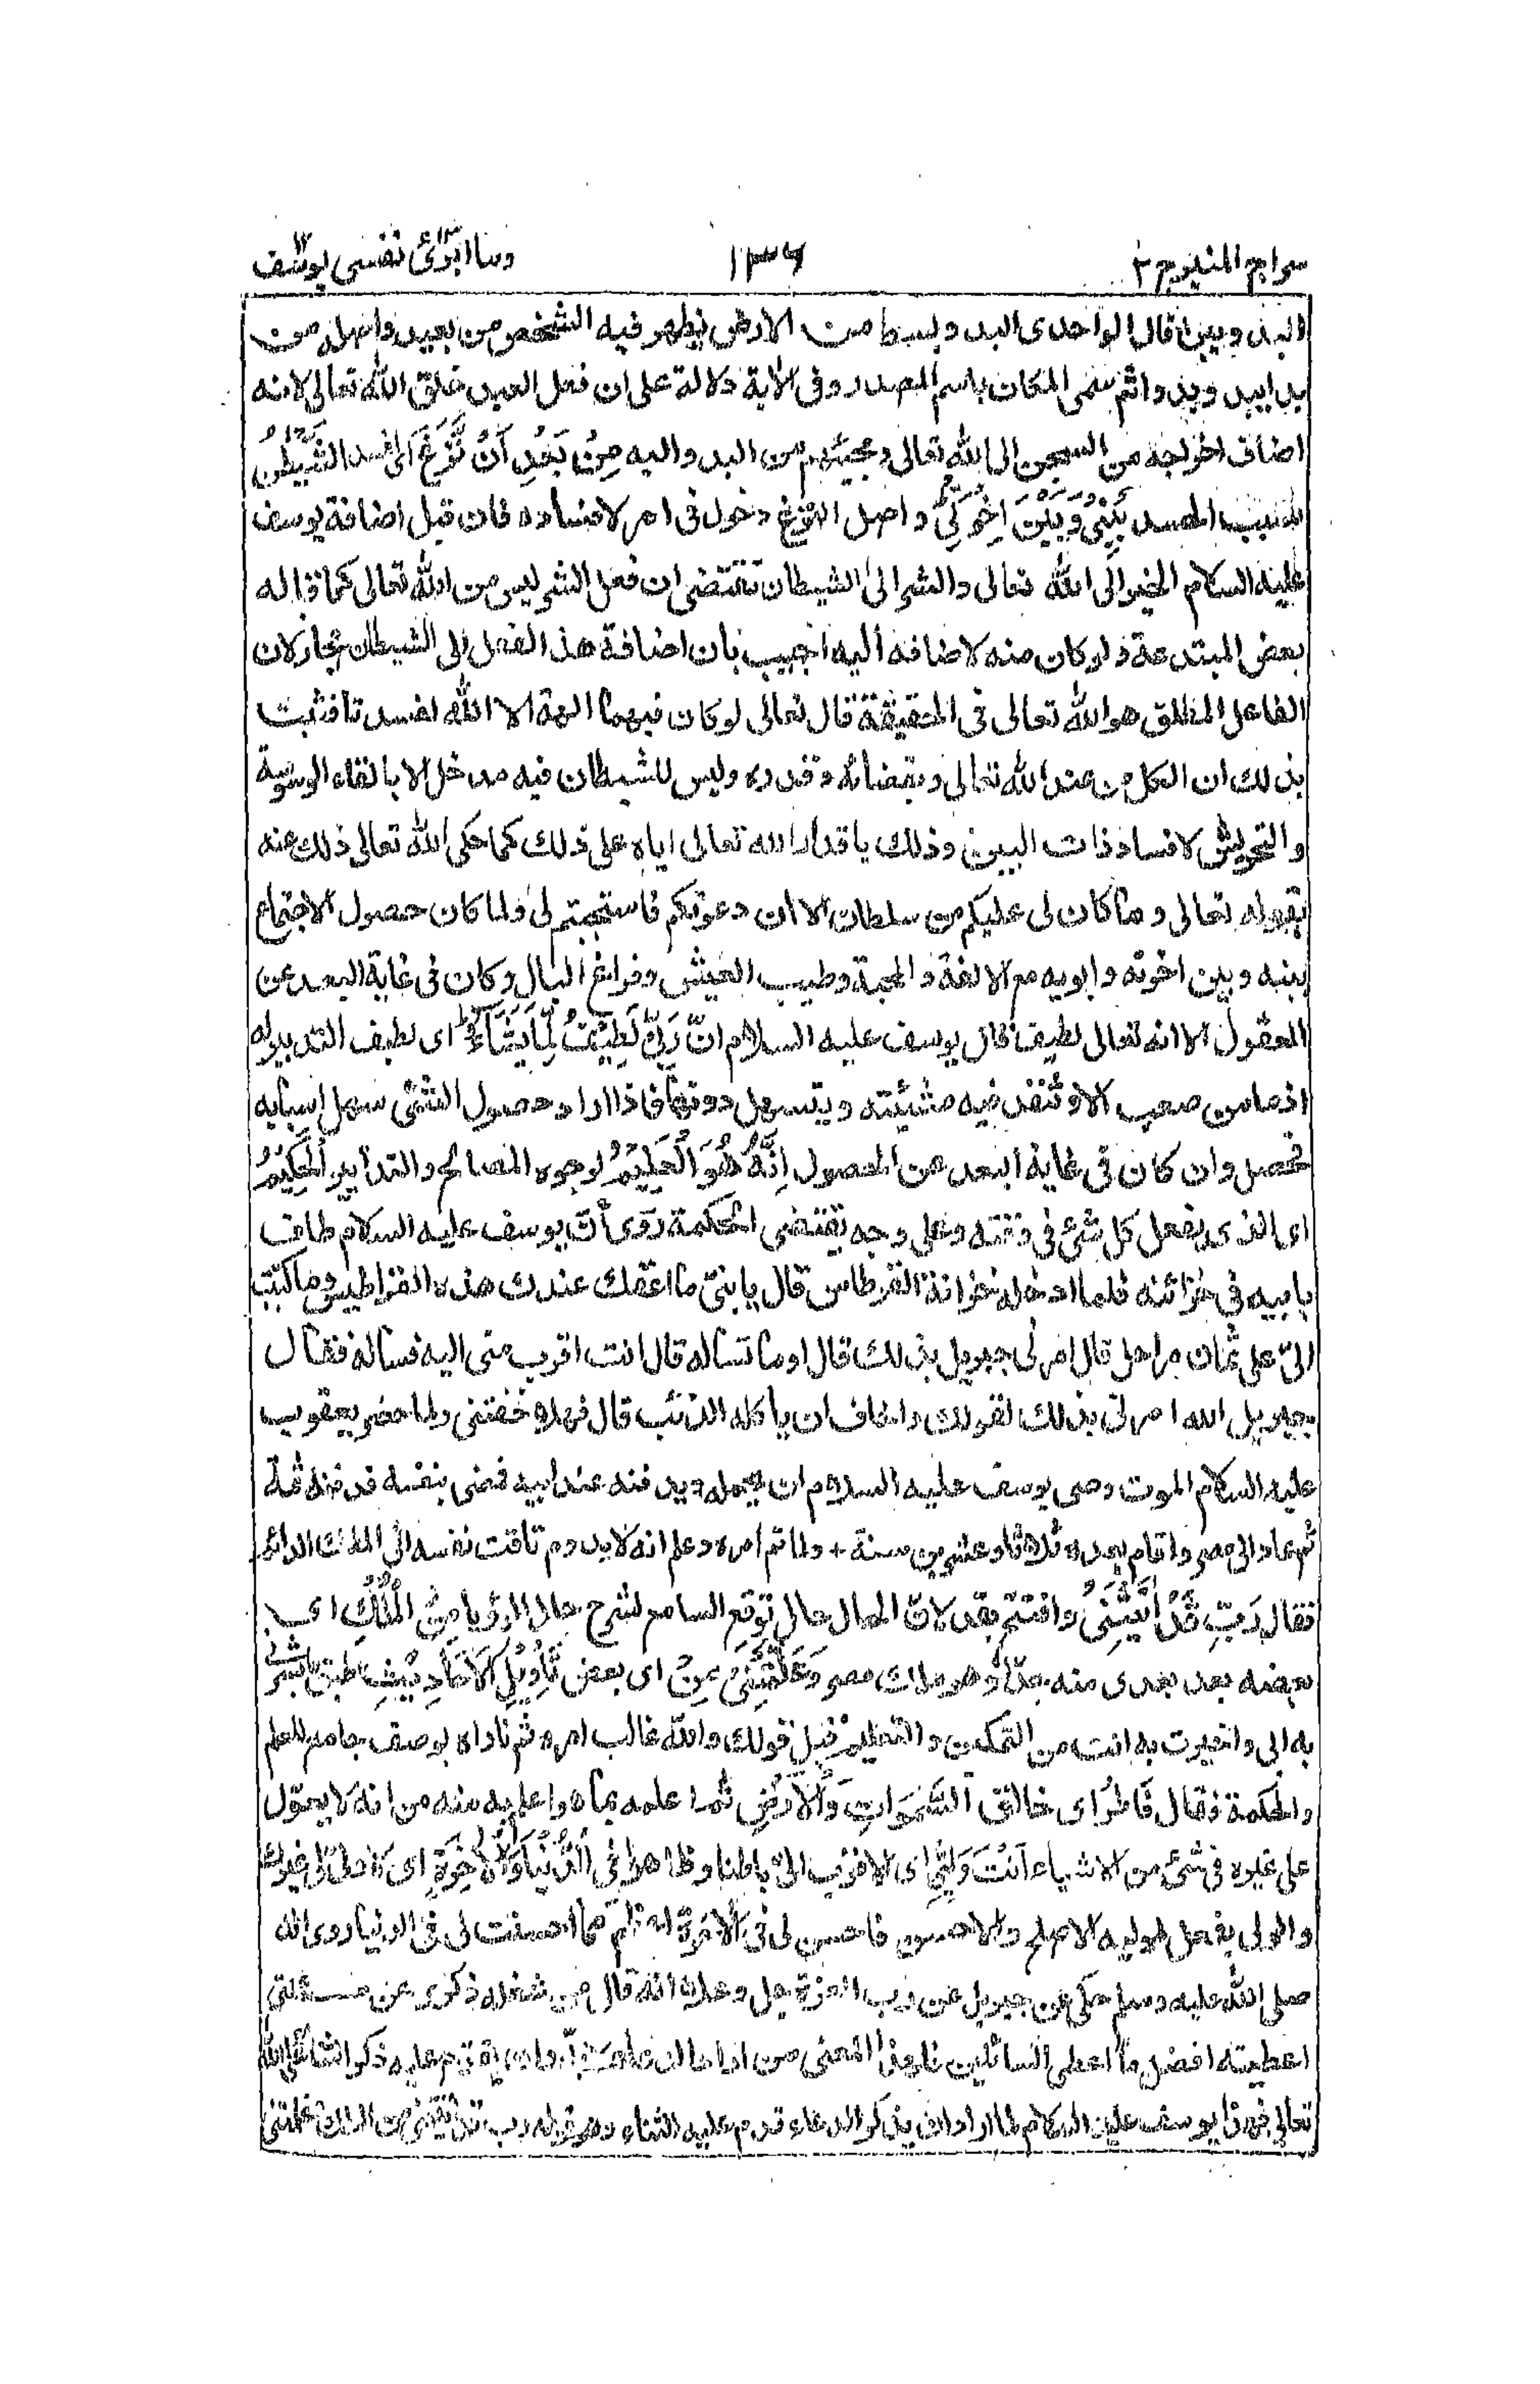 سراج المنير ج ۲
۱۳۶
وما ابرّئ نفسى يوسف
البدو وبين قال الواحدى البدو بسط من الارض يظهر فيه الشخص من بعيد واصله من
بدا يبدو بدوا ثم سمى المكان باسم المصدر وفى الآية دلالة على ان فعل العبد خلق الله تعالى لانه
اضاف اخراجه من السجن الى الله تعالى ومجيئهم من البدو اليه مِنْ بَعْدِ اَنْ نَّزَغَ اى افسد الشَّيْطٰنُ
بسبب الحسد بَيْنِىْ وَبَيْنَ اِخْوَتِىْ واصل النزغ دخول فى امر لافساده فان قيل اضافة يوسف
عليه السلام الخير الى الله تعالى والشر الى الشيطان تقتضى ان فعل الشر ليس من الله تعالى كما قاله
بعض المبتدعة ولو كان منه لاضافه اليه اجيب بان اضافة هذا الفعل الى الشيطان مجاز لان
الفاعل المطلق هو الله تعالى فى الحقيقة قال تعالى لو كان فيهما الهة الا الله لفسدتا فثبت
بذلك ان الكل من عند الله تعالى وبقضائه وقدره وليس للشيطان فيه مدخل الا بالقاء الوسوسة
والتحريش لافساد ذات البين وذلك باقدار الله تعالى اياه على ذلك كما حكى الله تعالى ذلك عنه
بقوله تعالى وما كان لى عليكم من سلطان الا ان دعوتكم فاستجبتم لى ولما كان حصول الاجتماع
بينه وبين اخوته وابويه مع الالفة والمحبة وطيب العيش وفراغ البال وكان فى غاية البعد عن
العقول الا انه تعالى لطيف قال يوسف عليه السلام اِنَّ رَبِّىْ لَطِيْفٌ لِّمَا يَشَآءُ اى لطيف التدبير له
اذ ما من صعب الا وتنفذ فيه مشيئته ويتسهل دونها فاذا اراد حصول الشئ سهل اسبابه
فحصل وان كان فى غاية البعد عن الحصول اِنَّهٗ هُوَ الْعَلِيْمُ لوجوه المصالح والتدابير الْحَكِيْمُ
اى الذى يفعل كل شئ فى وقته وعلى وجه يقتضى الحكمة روى ان يوسف عليه السلام طاف
بابيه فى خزائنه فلما ادخله خزانة القرطاس قال يا بنىّ ما اعقك عندك هذه القراطيس وما كتبت
الىّ على ثمان مراحل قال امرنى جبريل بذلك قال اوما تساله قال انت اقرب منى اليه فساله فقال
جبريل الله امرنى بذلك لقولك واخاف ان ياكله الذئب قال فهلا خفتنى ولما حضر يعقوب
عليه السلام الموت وصى يوسف عليه السلام ان يحمله ويدفنه عند ابيه فمضى بنفسه فدفنه ثمة
ثم عاد الى مصر واقام بعده ثلاثا وعشرين سنة + ولما تم امره وعلم انه لا يدوم تاقت نفسه الى الملك الدائم
فقال رَبِّ قَدْ اٰتَيْتَنِىْ وافتتح بقد لان الحال حال توقع السامع لشرح حال الرؤيا مِنَ الْمُلْكِ اى
بعضه بعد بعدى منه جدّا وهو ملك مصر وَعَلَّمْتَنِىْ مِنْ اى بعض تَأْوِيْلِ الْاَحَادِيْثِ طبق ما بشرنى
به ابى واخبرت به انت من التمكين والتعليم قبل قولك والله غالب امره ثم ناداه بوصف جامع للعلم
والحكمة فقال فَاطِرَ اى خالق السَّمٰوَاتِ وَالْاَرْضِ ثم اعلمه بما هو اعلم به منه من انه لا يعوّل
على غيره فى شئ من الاشياء اَنْتَ وَلِيِّىْ اى الاقرب الىّ باطنا وظاهرا فِى الدُّنْيَا وَالْاٰخِرَةِ اى لا ولىّ لى غيرك
والولى يفعل لموليه الاصلح والاحسن فاحسن لى فى الآخرة اعظم مما احسنت لى فى الدنيا روى انه
صلى الله عليه وسلم حكى عن جبريل عن رب العزة جل وعلا انه قال من شغله ذكرى عن مسئلتى
اعطيته افضل ما اعطى السائلين فلهذا المعنى من اراد الدعاء لا بد وان يقدم عليه ذكر الثناء على الله
تعالى فهذا يوسف عليه السلام لما اراد ان يذكر الدعاء قدم عليه الثناء وهو قوله رب قد آتيتنى من الملك وعلمتنى